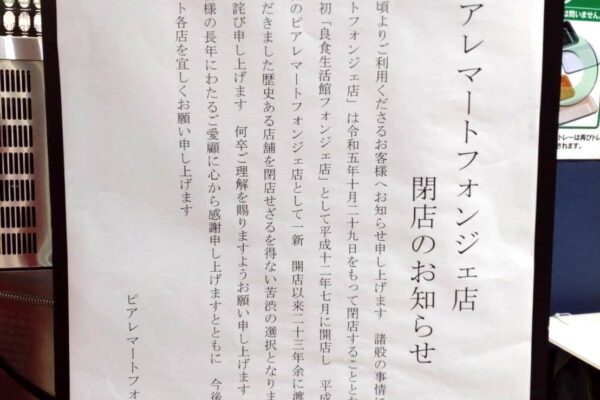 アレマートフォンジェ店
閉店のお知らせ
頃よりご利用くださるお客様へお知らせ申し上げます 諸般の事情に
トフォンジェ店」は令和五年十月二十九日をもって閉店することと
初「良食生活館フォンジェ店」として平成十二年七月に開店し 平成
のピアレマートフォンジェ店として一新 開店以来二十三年余に渡
だきました歴史ある店舗を閉店せざるを得ない苦渋の選択となりま
詫び申し上げます 何卒ご理解を賜りますようお願い申し上げます
様の長年にわたるご愛顧に心から感謝申し上げますとともに 今後
ト各店を宜しくお願い申し上げます
ピアレマートフォ
は問いません。
トレーは再びトレ
されます。